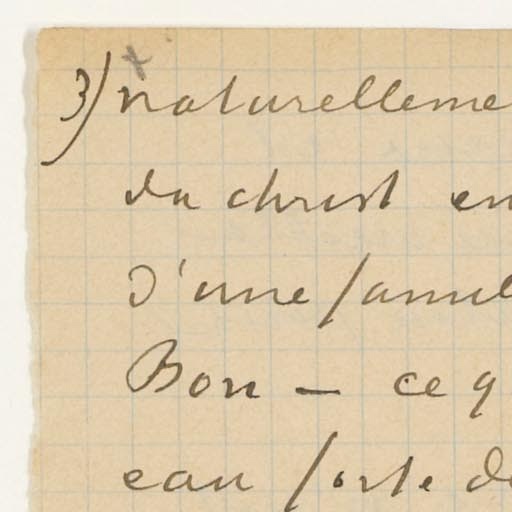 3) naturelleme
du christ en
D'une famil
Bon — ce q
eau forte de